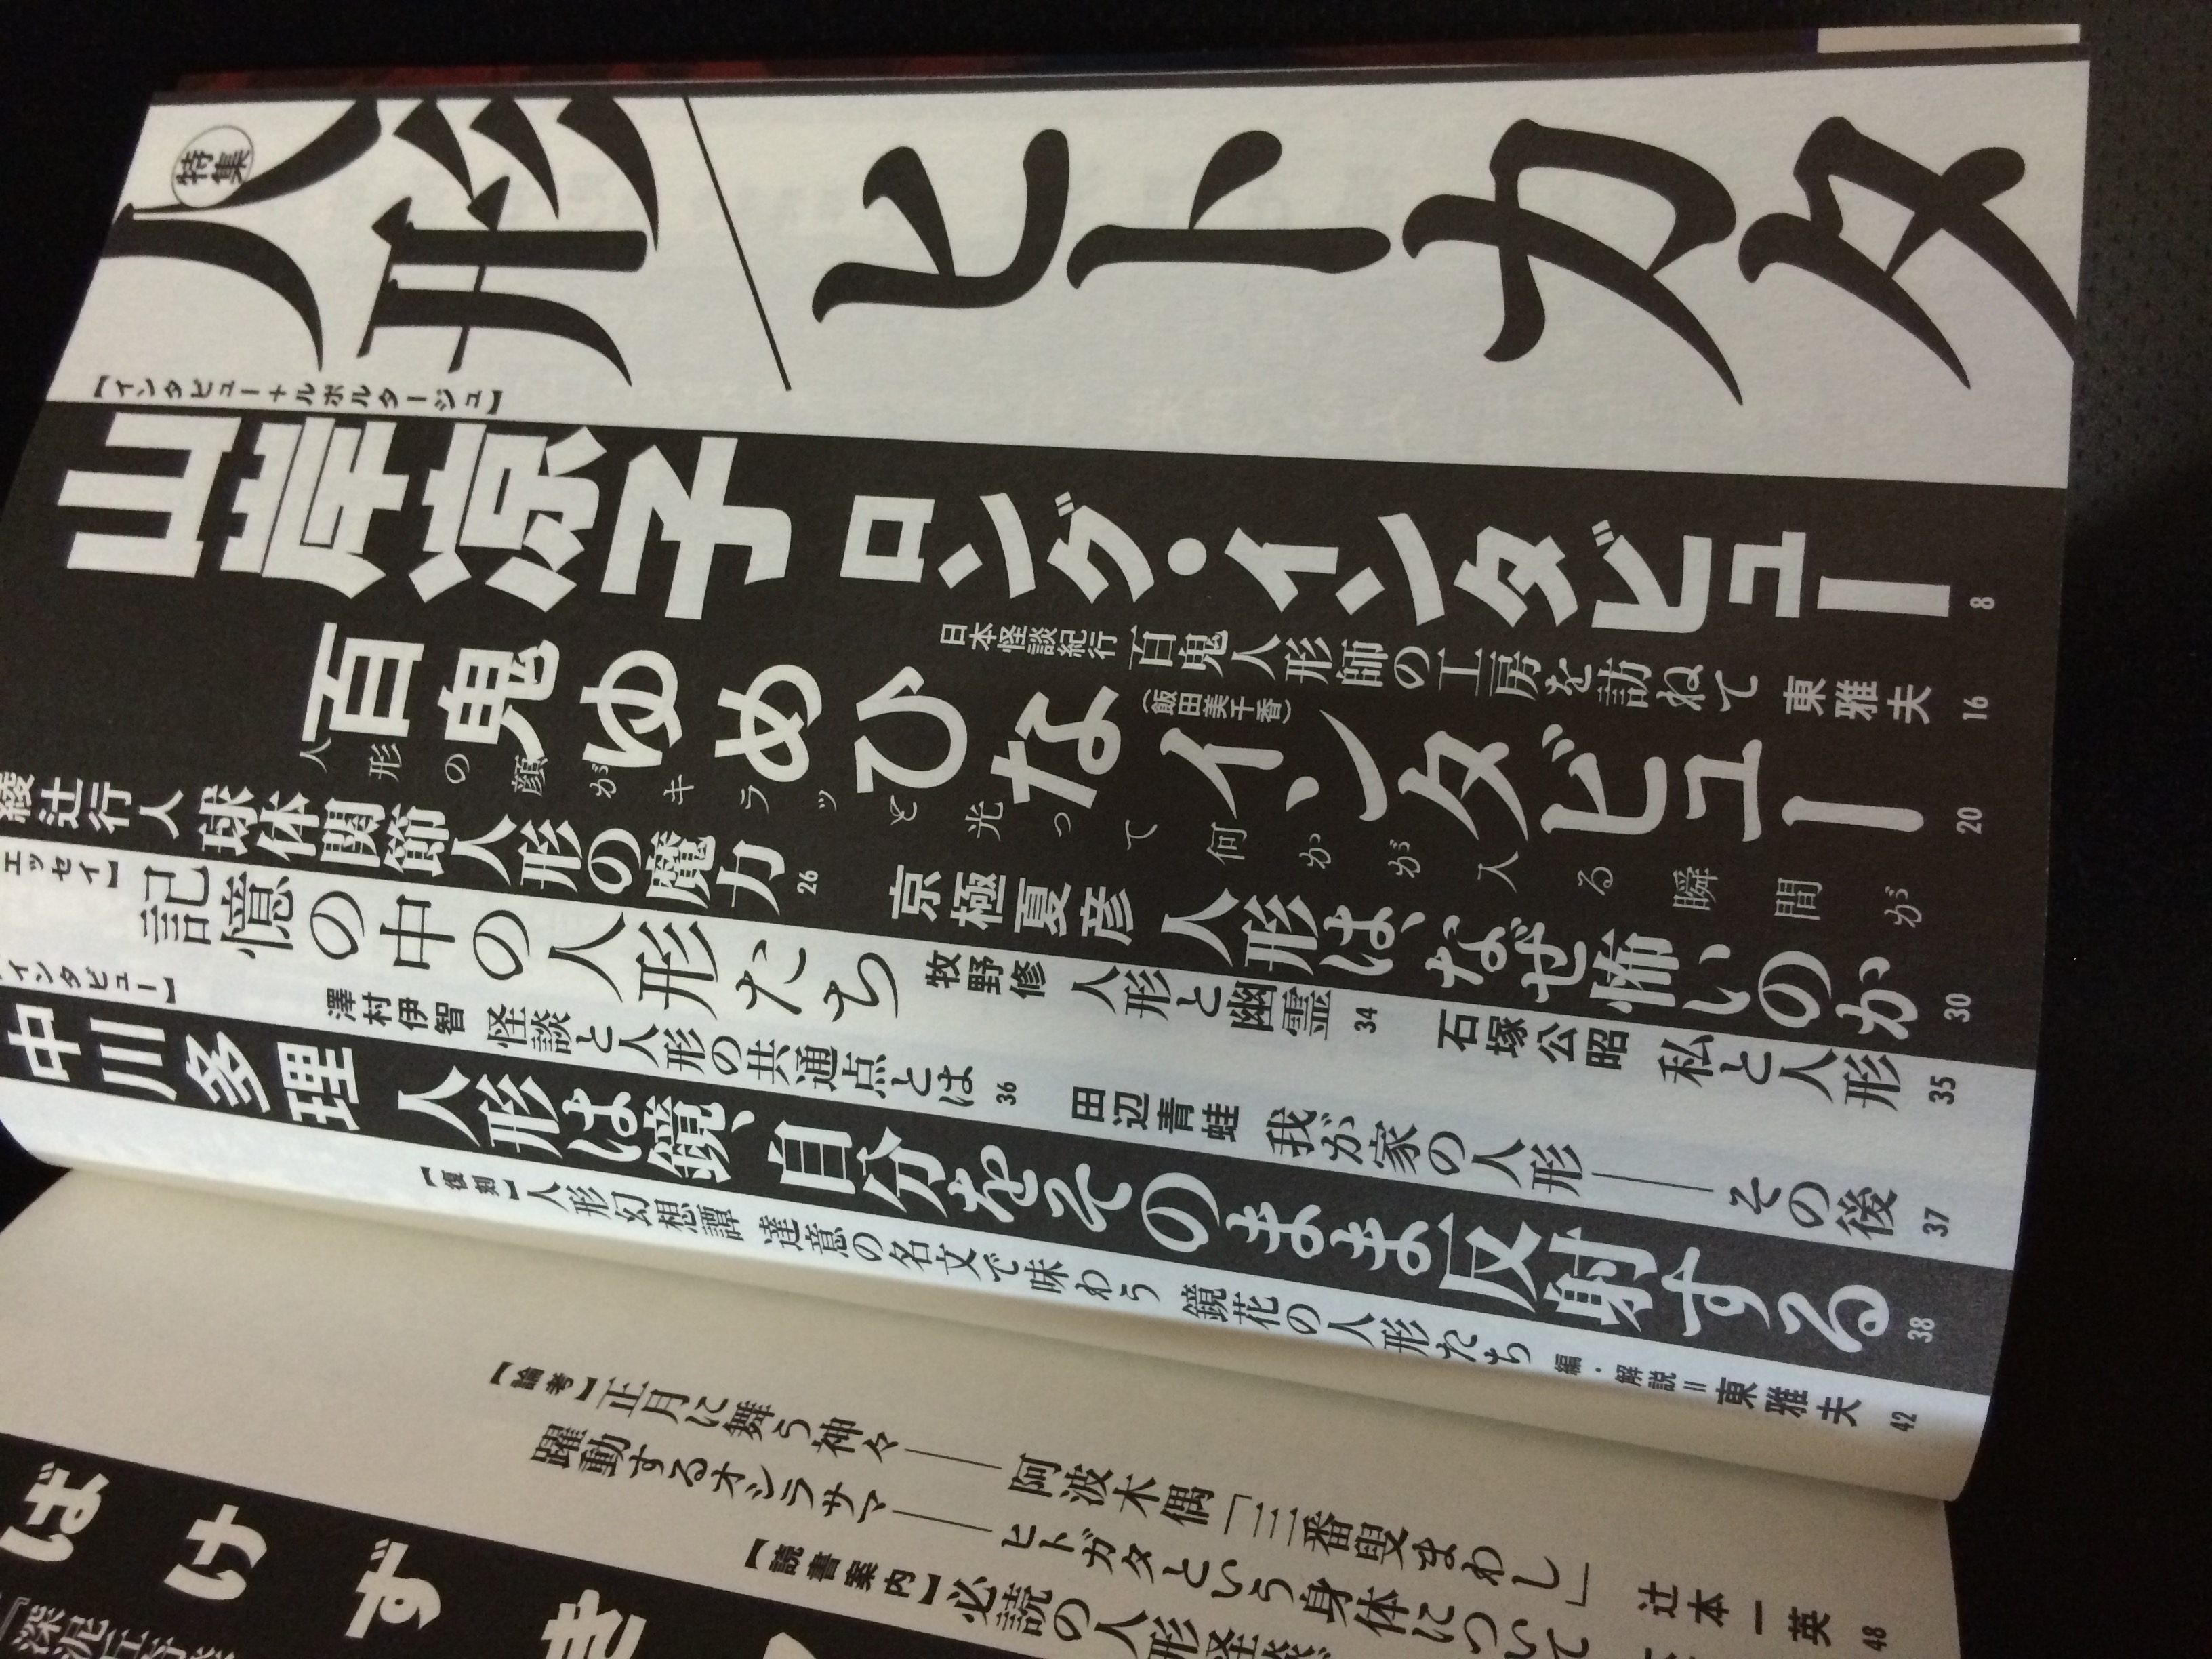 特集
人形/ヒトカタ
【インタビュー+ルポルタージュ】
山岸凉子 ロング・インタビュー 8
日本怪談紀行 百鬼人形師の工房を訪ねて 東雅夫 16
百鬼ゆめひな(飯田美千香)インタビュー 20
人形の顔がキラッと光って何かが入る瞬間が
綾辻行人 球体関節人形の魔力 26
京極夏彦 人形は、なぜ怖いのか 30
エッセイ】
記憶の中の人形たち
牧野修 人形と幽霊 34
石塚公昭 私と人形 35
澤村伊智 怪談と人形の共通点とは 36
田辺青蛙 我が家の人形――その後 37
インタビュー】
中川多理 人形は鏡、自分をそのまま反射する 38
【復刻】人形幻想譚 達意の名文で味わう 鏡花の人形たち 編・解説=東雅夫 42
【論考】正月に舞う神々――阿波木偶「三番叟まわし」 辻本一英 48
躍動するオシラサマ――ヒトガタという身体について
【読書案内】必読の人形怪談
ばけずき
『深泥丘